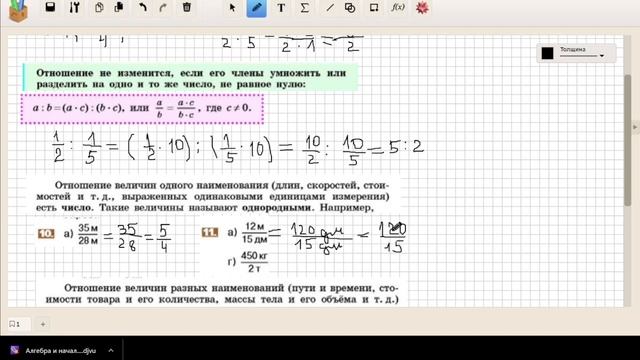 f(x)
Толщина
2 · 5
2 · 1
2
Отношение не изменится, если его члены умножить или
разделить на одно и то же число, не равное нулю:
a : b = (a · c) : (b · c), или a/b = a · c/b · c, где c ≠ 0.
1/2 : 1/5 = (1/2 · 10) : (1/5 · 10) = 10/2 : 10/5 = 5 : 2
Отношение величин одного наименования (длин, скоростей, стои-
мостей и т. д., выраженных одинаковыми единицами измерения)
есть число. Такие величины называют однородными. Например,
10. а) 35 м/28 м = 35/28 = 5/4 11. а) 12 м/15 дм = 120 дм/15 дм = 120/15
г) 450 кг/2 т
Отношение величин разных наименований (пути и времени, сто-
имости товара и его количества, массы тела и его объёма и т. д.)
1
Алгебра и начал....djvu